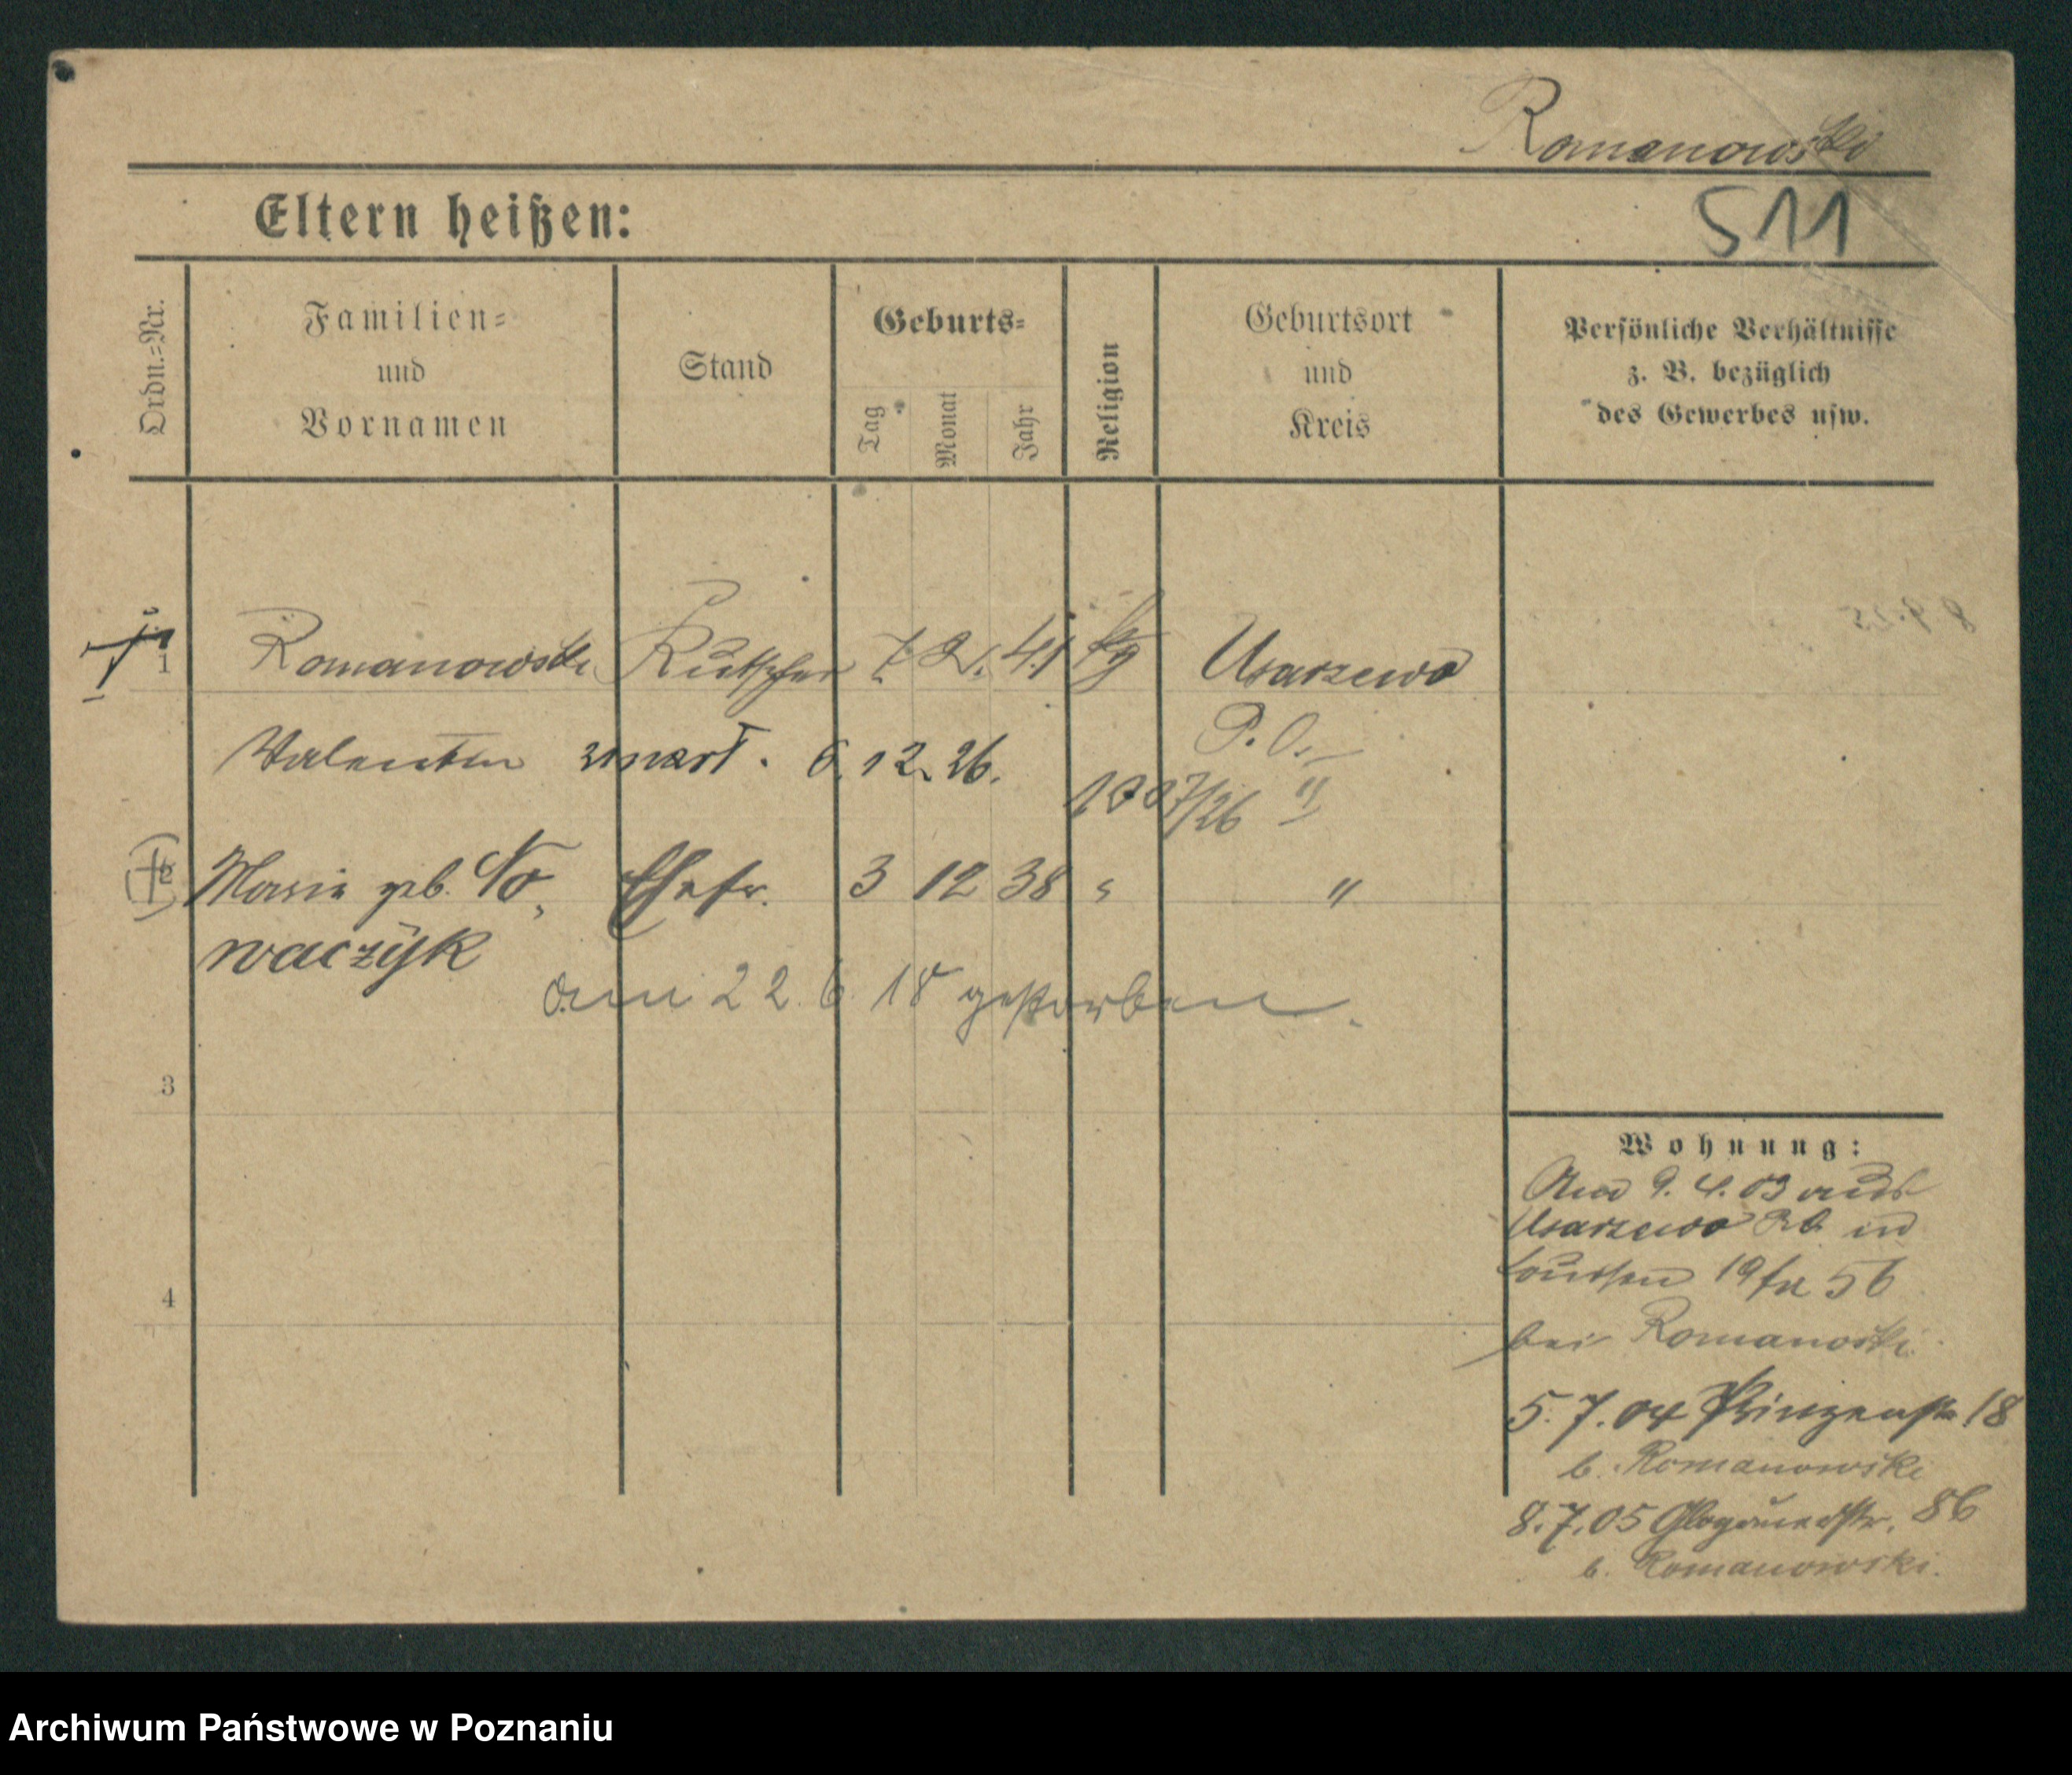 Romanowski
Eltern heißen:
511
Ordn.=Nr.
Familien=
und
Vornamen
Stand
Geburts=
Tag
Monat
Jahr
Religion
Geburtsort
und
Kreis
Persönliche Verhältnisse
z. B. bezüglich
des Gewerbes usw.
1 Romanowski Kutscher 7 2. 41 kg Usarzewo
Valentin zmarł. 6. 12. 26. P. O.
1997/26 "
2 Marie geb. No, Ehefr. 3 12 38 " "
waczÿk
am 22. 6. 18 gestorben.
3
4
Wohnung:
9. 4. 03 aus
Usarzewo in
19 56
bei Romanoski.
5. 7. 04 Prinzenstr 18
b. Romanowski
8. 7. 05 Glogauerstr. 86
b. Romanowski.
Archiwum Państwowe w Poznaniu